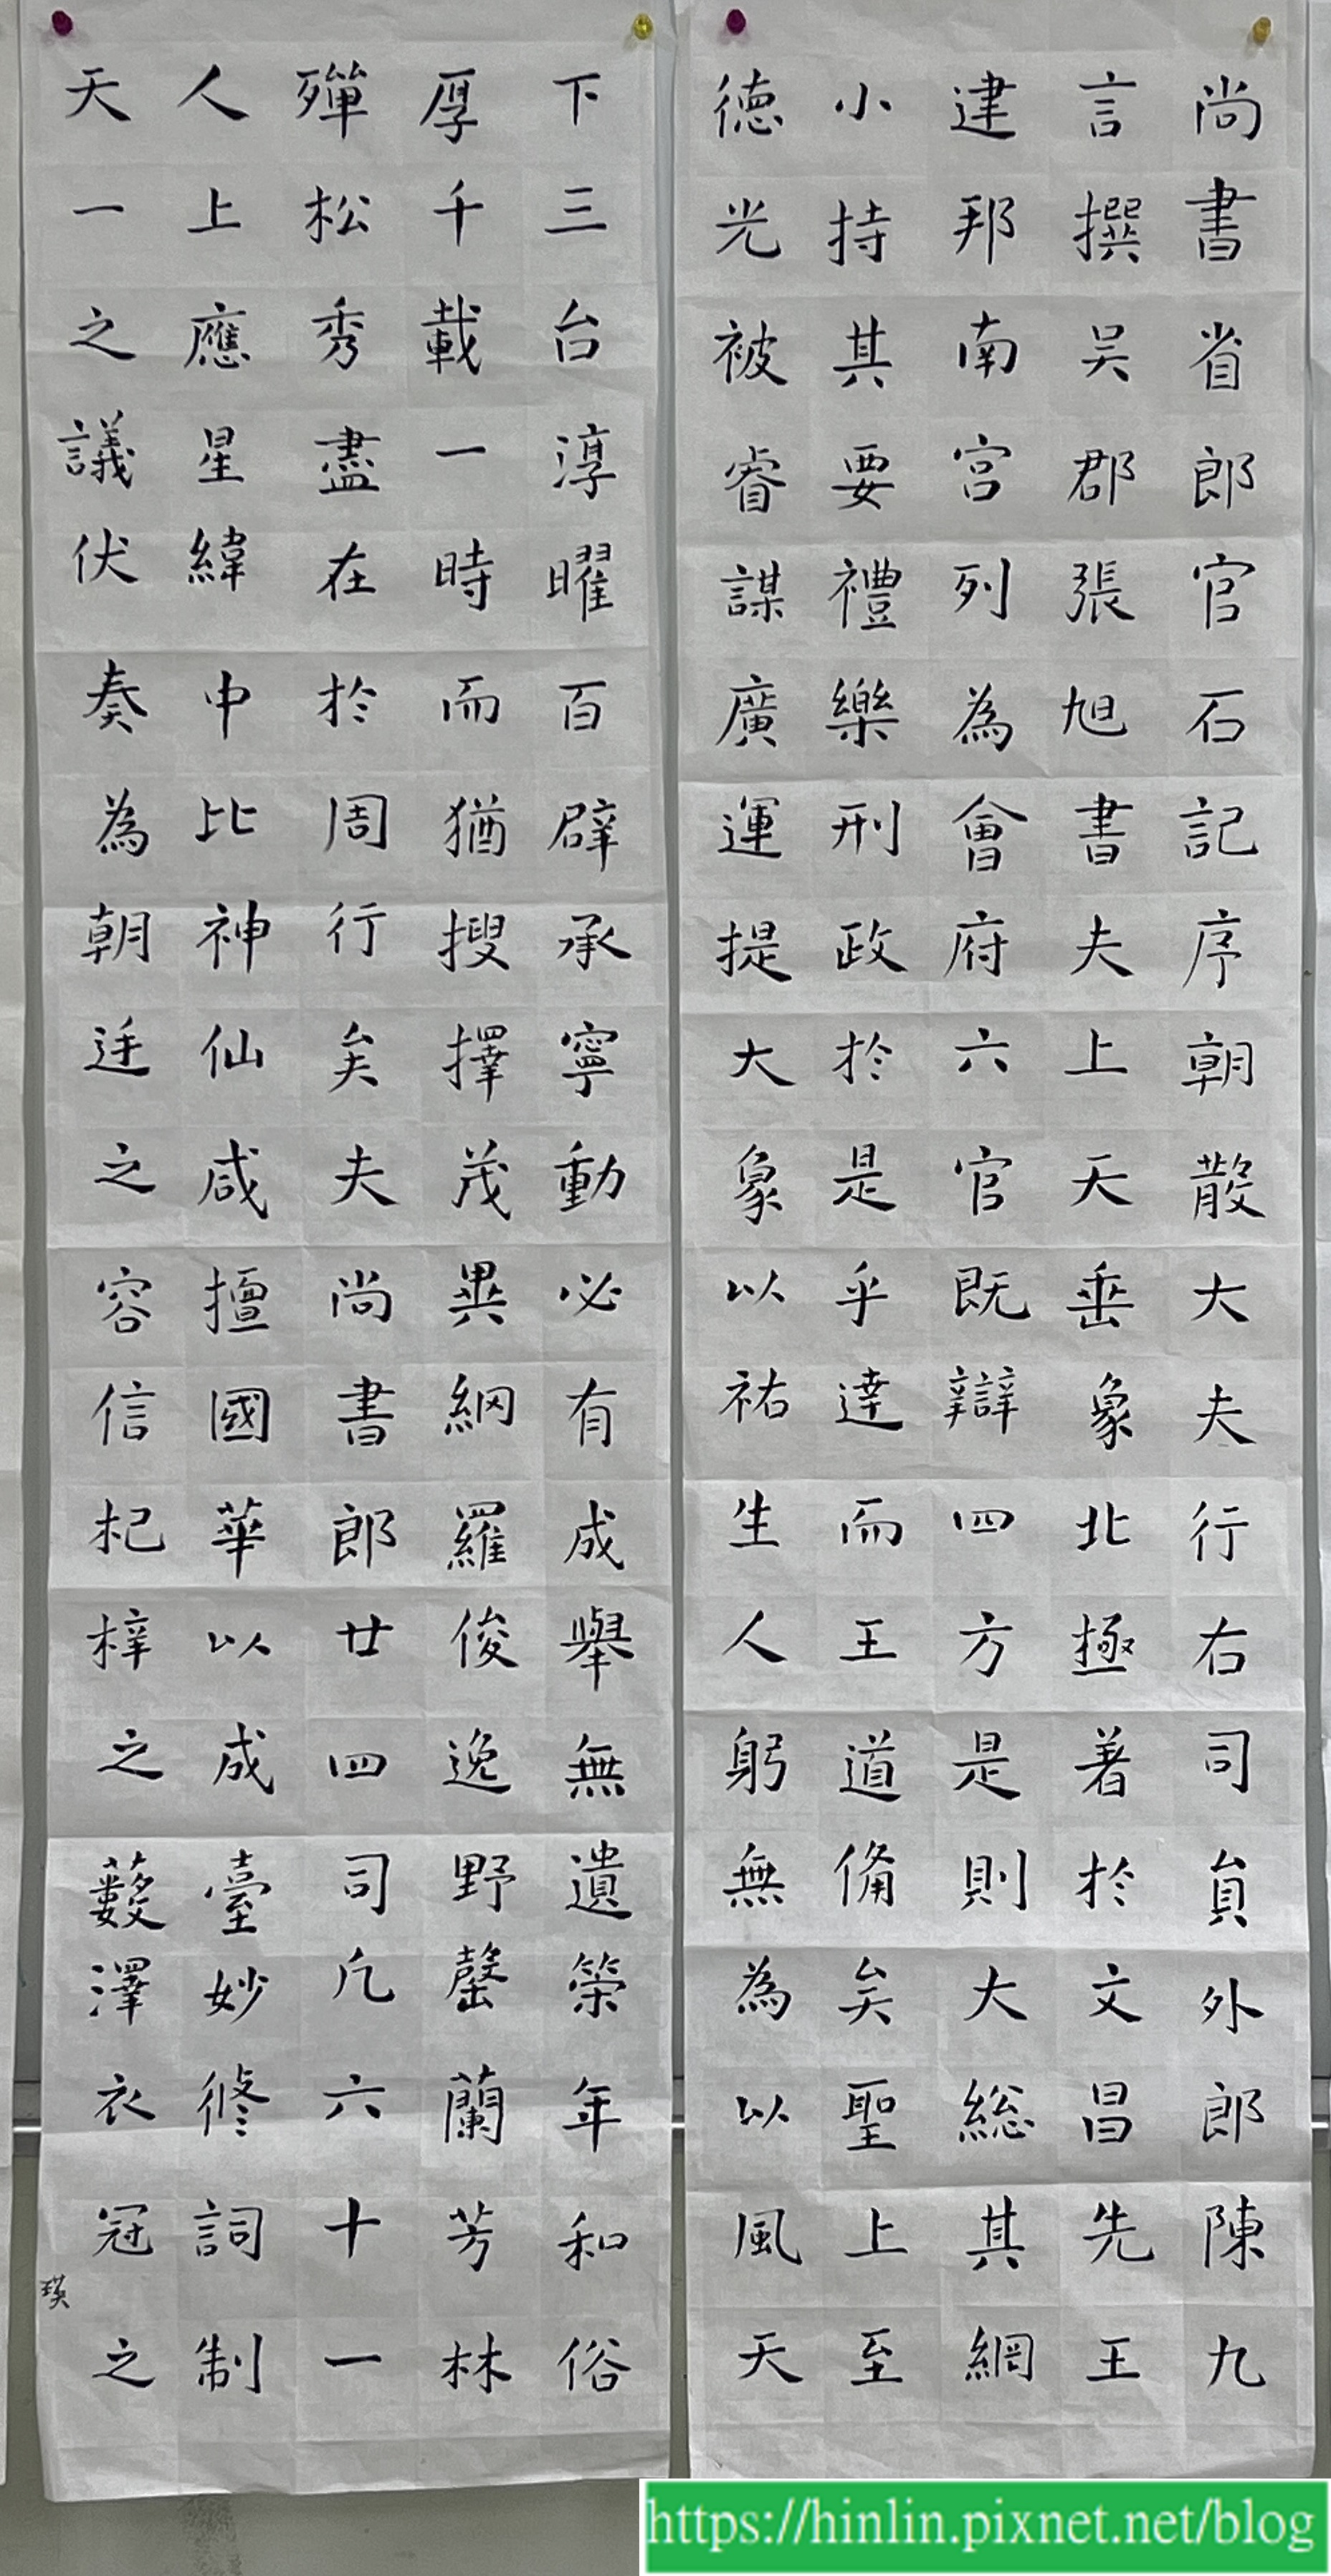 尚書省郎官石記序朝散大夫行右司員外郎陳九
言撰吳郡張旭書夫上天垂象北極著於文昌先王
建邦南宮列為會府六官既辯四方是則大総其綱
小持其要禮樂刑政於是乎達而王道備矣聖上至
德光被睿謀廣運提大象以祐生人躬無為以風天
下三台淳曜百辟承寧動必有成舉無遺策年和俗
厚千載一時而猶搜擇茂異網羅俊逸野罄蘭芳林
殫松秀盡在於周行矣夫尚書郎廿四司凡六十一
人上應星緯中比神仙咸擅國華以成臺妙修詞制
天一之議伏奏為朝廷之容信杞梓之藪澤衣冠之
瑛
https://hinlin.pixnet.net/blog